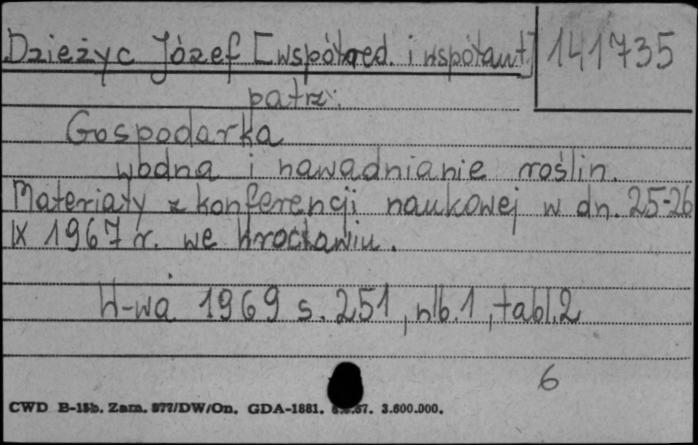 Dzieżyc Józef [współred. i współaut] 141735
patrz:
Gospodarka
wodna i nawadnianie roślin.
Materiały z konferencji naukowej w dn. 25-26
IX 1967 r. we Wrocławiu.
W-wa 1969 s. 251, nlb. 1, tabl. 2
6
CWD B-15b. Zam. 877/DW/On. GDA-1881. 67. 3.600.000.